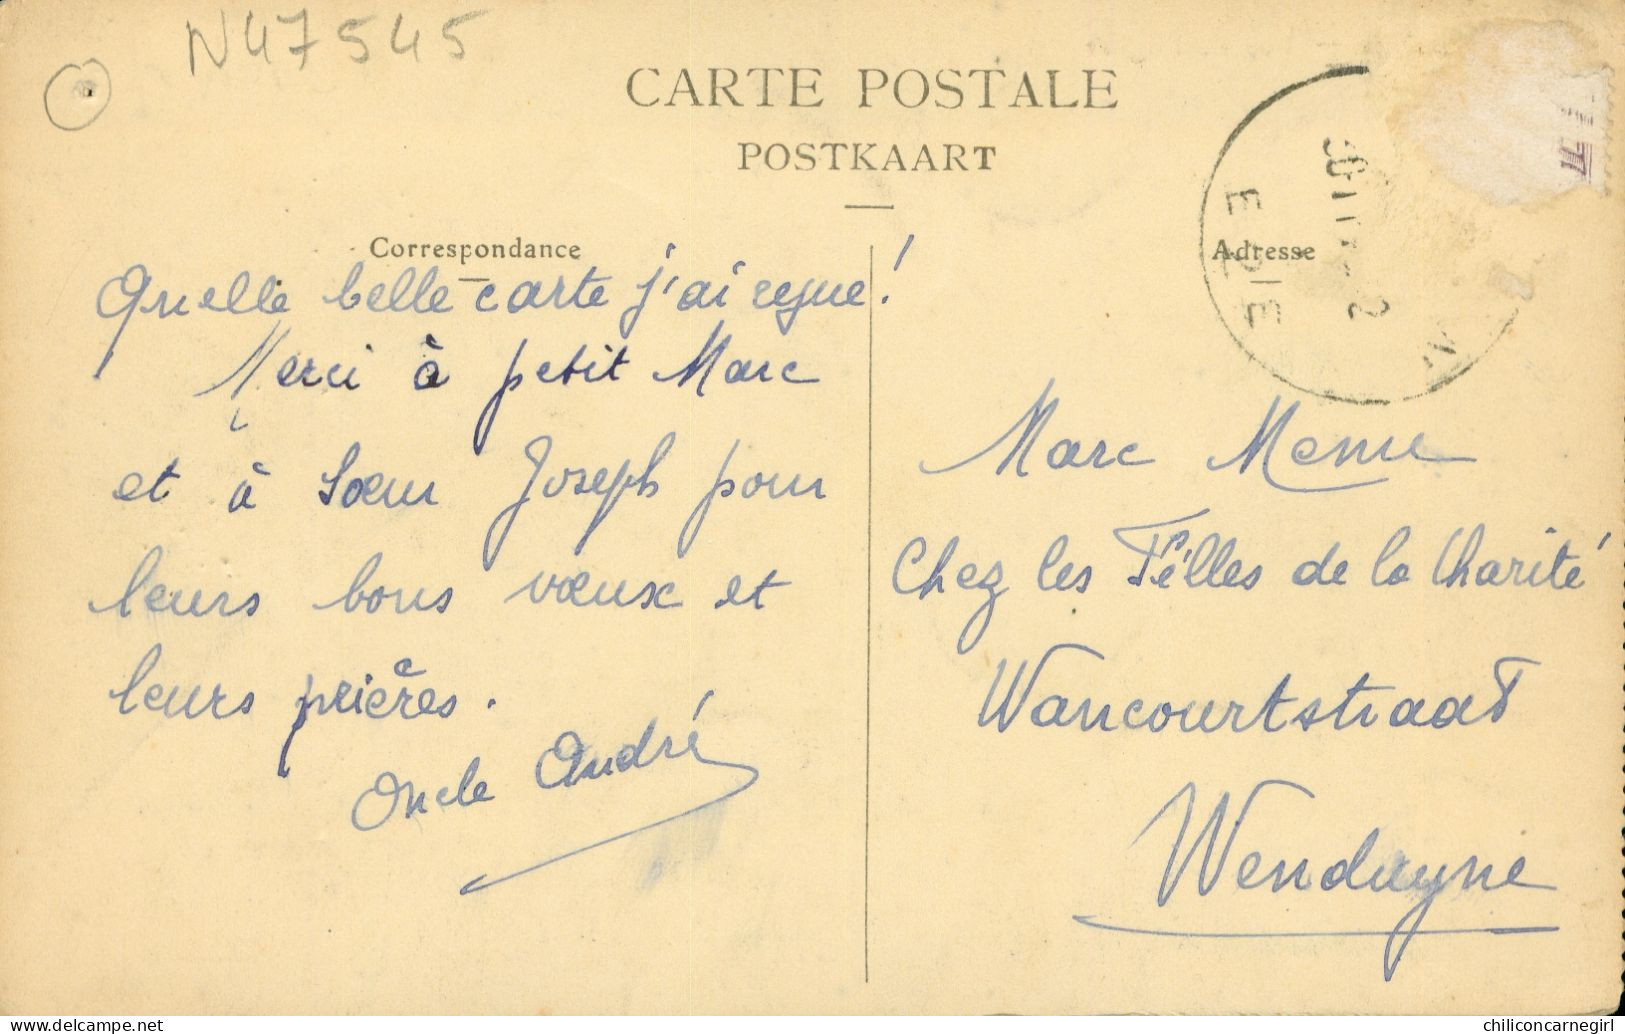 N47545
CARTE POSTALE
POSTKAART
Correspondance
Quelle belle carte j'ai reçue !
Merci à petit Marc
et à Sœur Joseph pour
leurs bons vœux et
leurs prières.
Oncle André
Adresse
Marc
Chez les Filles de la Charité
Wancourtstraat
Wenduyne
www.delcampe.net
chiliconcarnegirl